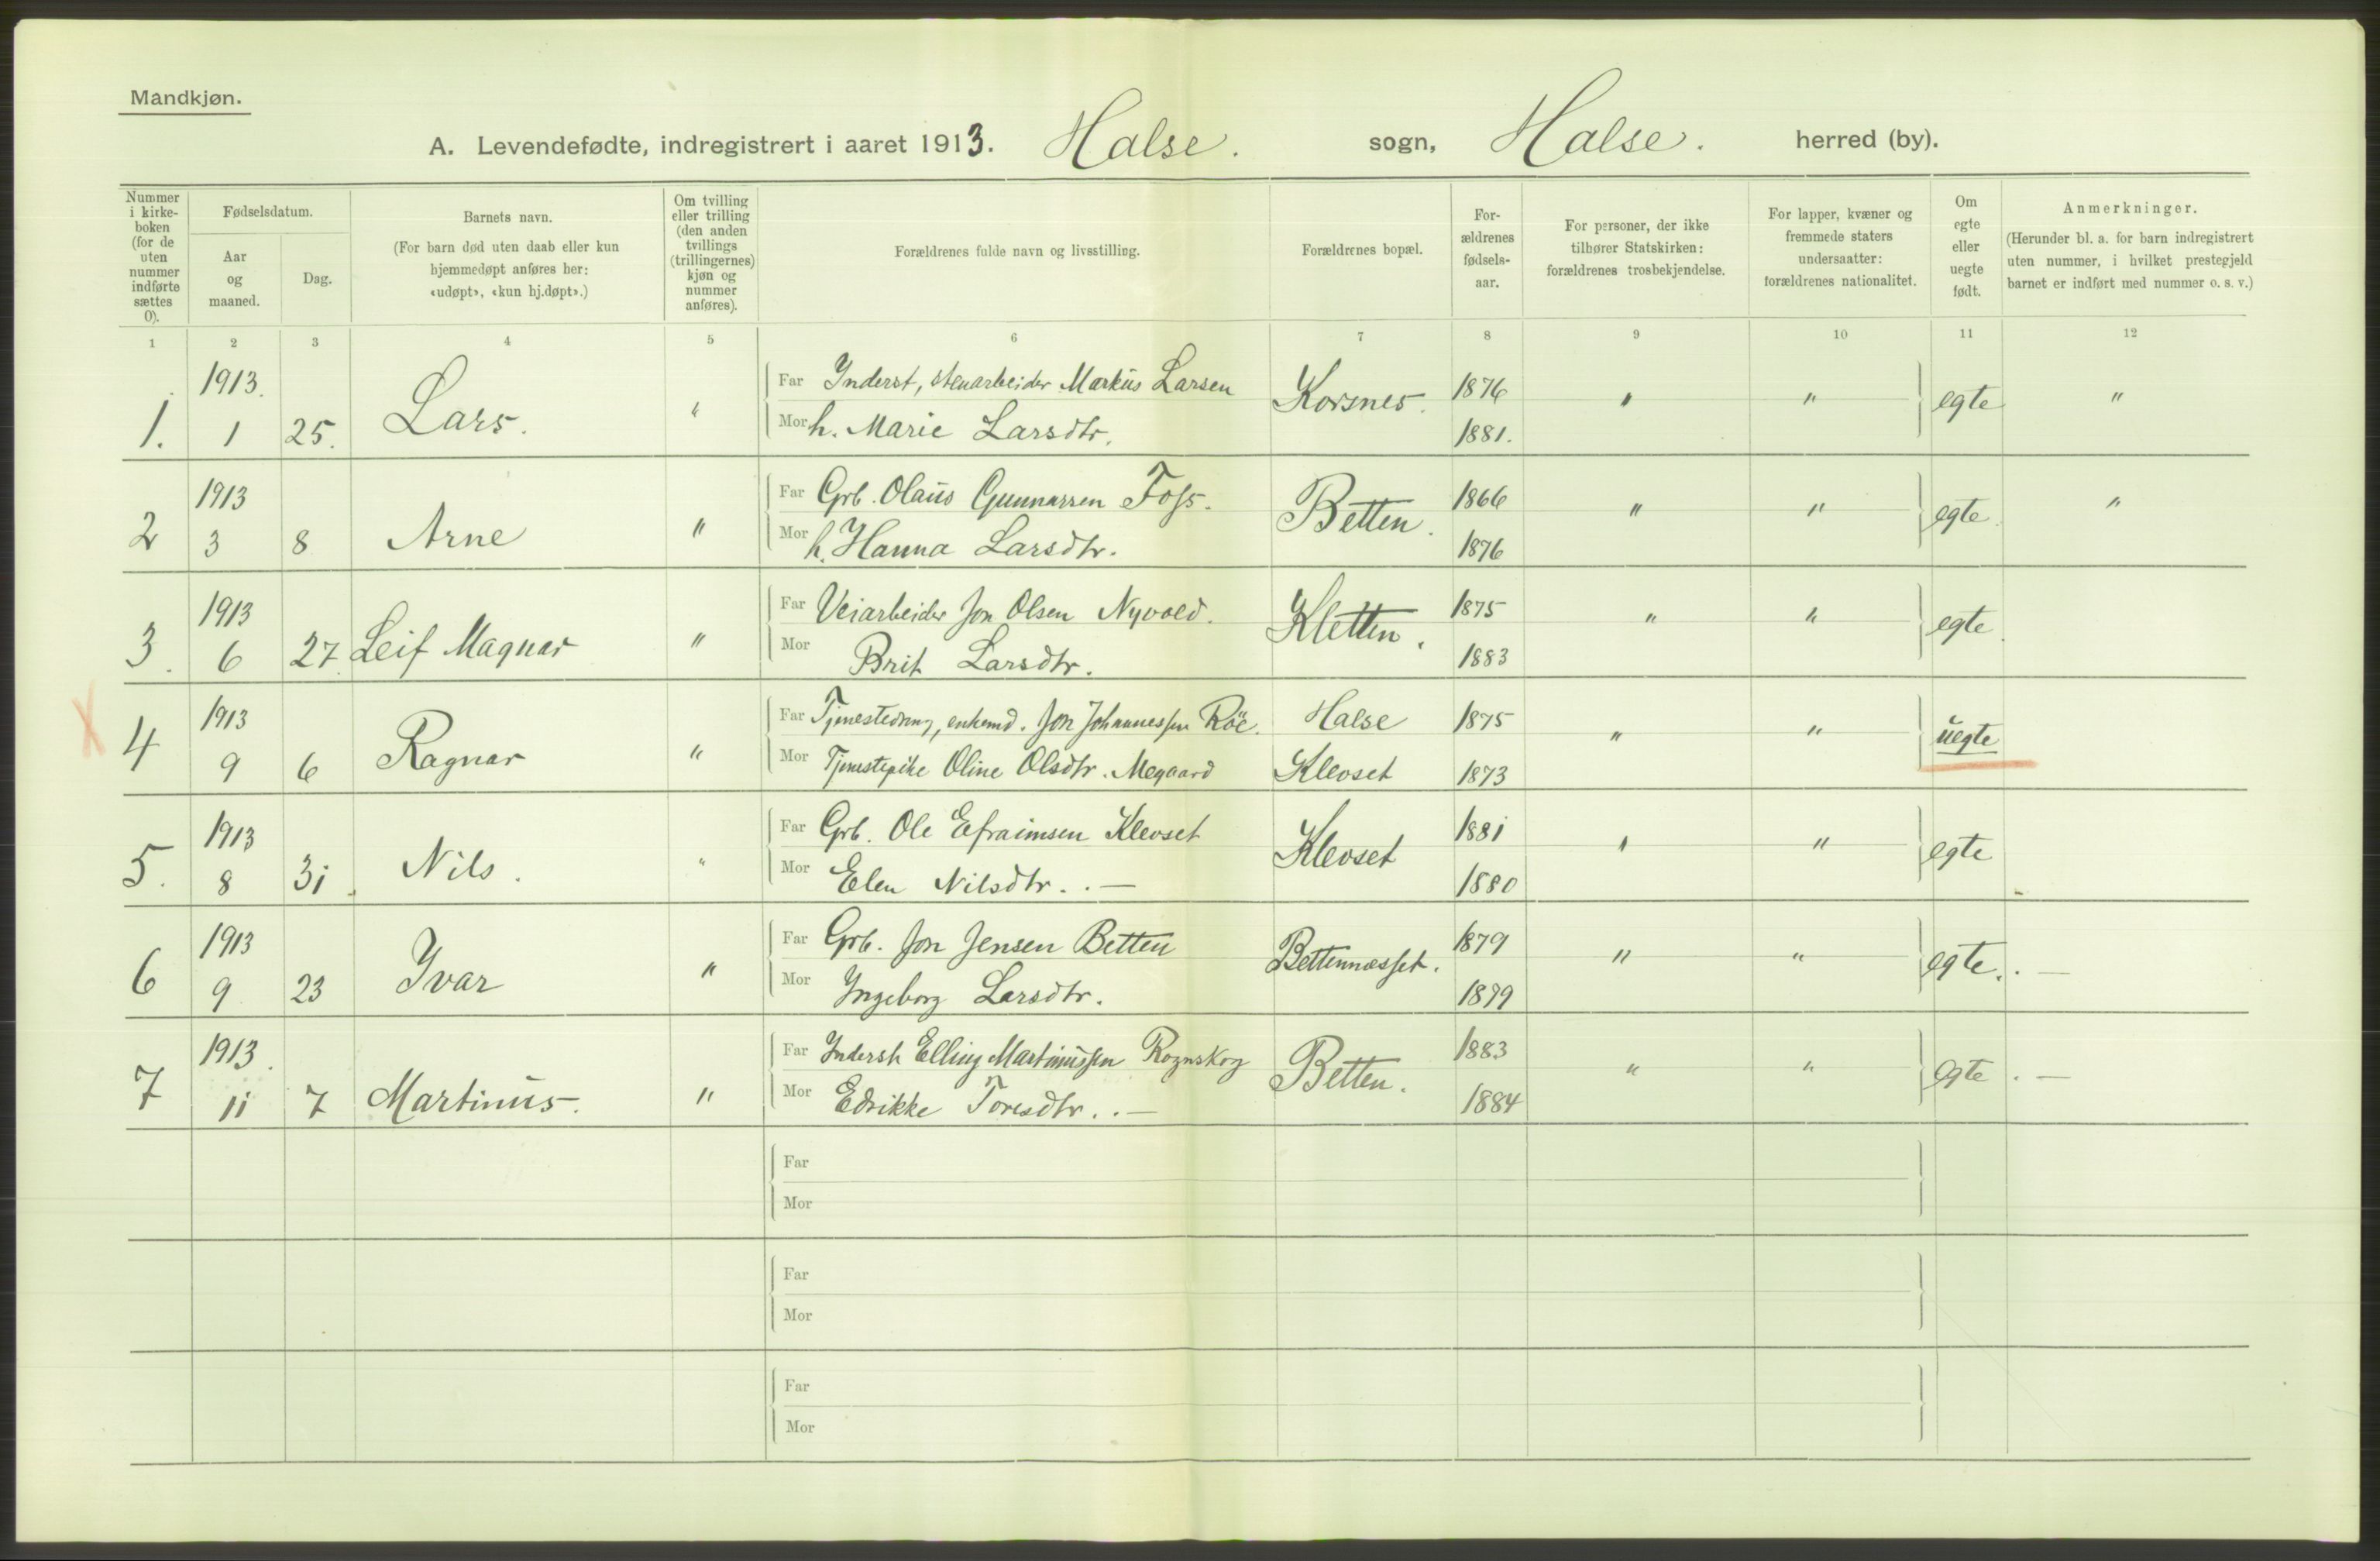 Mandkjøn.
A. Levendefødte, indregistrert i aaret 1913. Halse. sogn, Halse. herred (by).
Nummer i kirke-boken (for de uten nummer indførte sættes 0).
Fødselsdatum.
Aar og maaned.
Dag.
Barnets navn.
(For barn død uten daab eller kun hjemmedøpt anføres her: «udøpt», «kun hj.døpt».)
Om tvilling eller trilling (den anden tvillings (trillingernes) kjøn og nummer anføres).
Forældrenes fulde navn og livsstilling.
Forældrenes bopæl.
For-ældrenes fødsels-aar.
For personer, der ikke tilhører Statskirken: forældrenes trosbekjendelse.
For lapper, kvæner og fremmede staters undersaatter: forældrenes nationalitet.
Om egte eller uegte født.
Anmerkninger.
(Herunder bl. a. for barn indregistrert uten nummer, i hvilket prestegjeld barnet er indført med nummer o. s. v.)
1 2 3 4 5 6 7 8 9 10 11 12
1913. Far Inderst, stenarbeider Markus Larsen Korsnes. 1876 " " egte "
1. 1 25. Lars. " Mor h. Marie Larsdtr. 1881.
1913 Far Grb. Olaus Gunnarsen Foss. Betten. 1866 " " egte. "
2 3 8 Arne " Mor h. Hanna Larsdtr. 1876
1913 Far Veiarbeider Jon Olsen Nyvold. Kletten. 1875 " " egte.
3. 6 27. Leif Magnar " Mor Brit Larsdtr. 1883
X 1913 Far Tjenestedreng, enkemd. Jon Johannessen Röe. Halse 1875 " " uegte
4 9 6 Ragnar " Mor Tjenestepike Oline Olsdtr. Megaard Klevset 1873
1913 Far Grb. Ole Efraimsen Klevset Klevset 1881 " " egte
5. 8 31. Nils. " Mor Elen Nilsdtr. . — 1880
1913 Far Grb. Jon Jensen Betten Bettennæsset. 1879 " " egte. . —
6 9 23 Ivar " Mor Ingeborg Larsdtr. 1879
1913. Far Inderst Elling Martinussen Rognskog Betten. 1883 " " egte . —
7 11 7 Martinus. " Mor Edrikke Toresdtr. . — 1884
Far
Mor
Far
Mor
Far
Mor